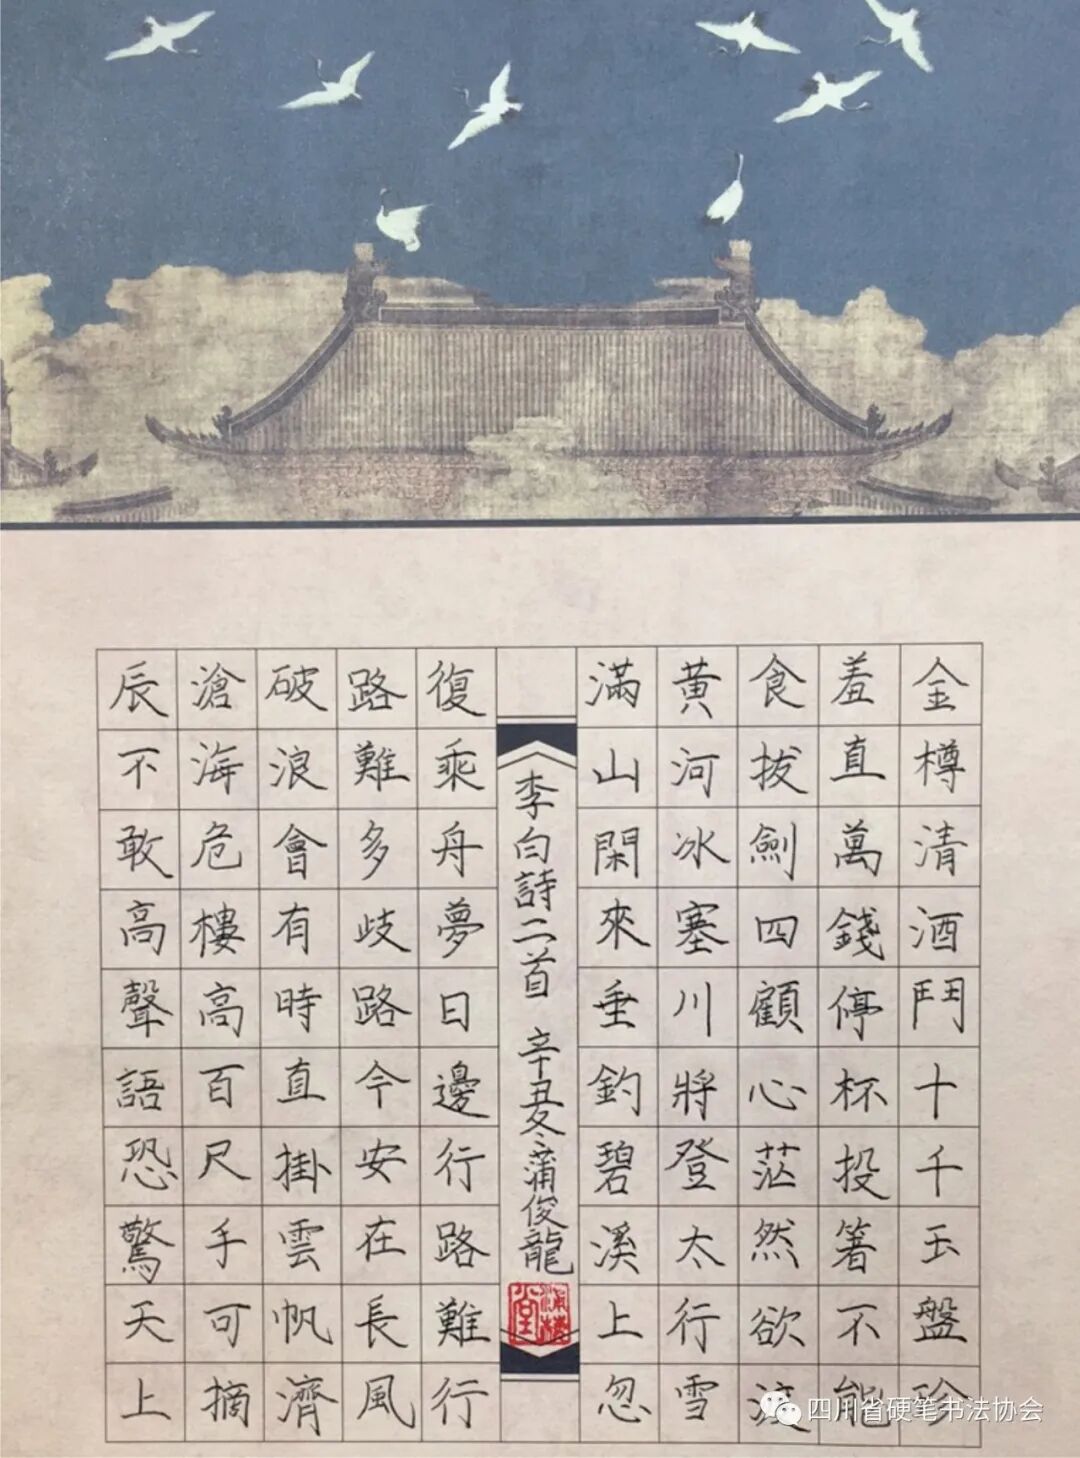 金樽清酒鬥十千玉盤珍
羞直萬錢停杯投箸不能
食拔劍四顧心茫然欲渡
黄河冰塞川將登太行雪
滿山閑來垂釣碧溪上忽
李白詩二首 辛丑冬蒲俊龍
復乘舟夢日邊行路難行
路難多歧路今安在長風
破浪會有時直掛雲帆濟
滄海危樓高百尺手可摘
辰不敢高聲語恐驚天上
四川省硬笔书法协会